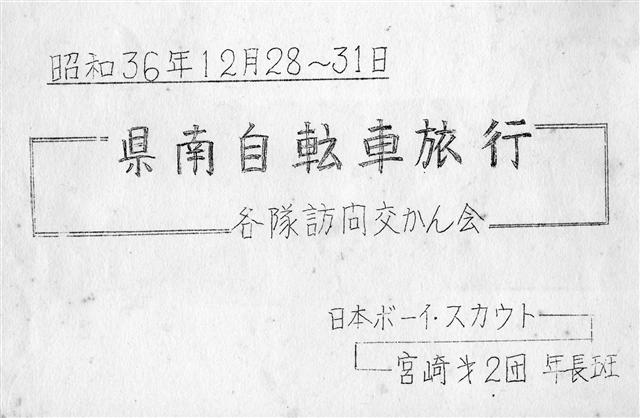 昭和36年12月28～31日
県南自転車旅行
各隊訪問交かん会
日本ボーイ・スカウト
宮崎才2団 年長班